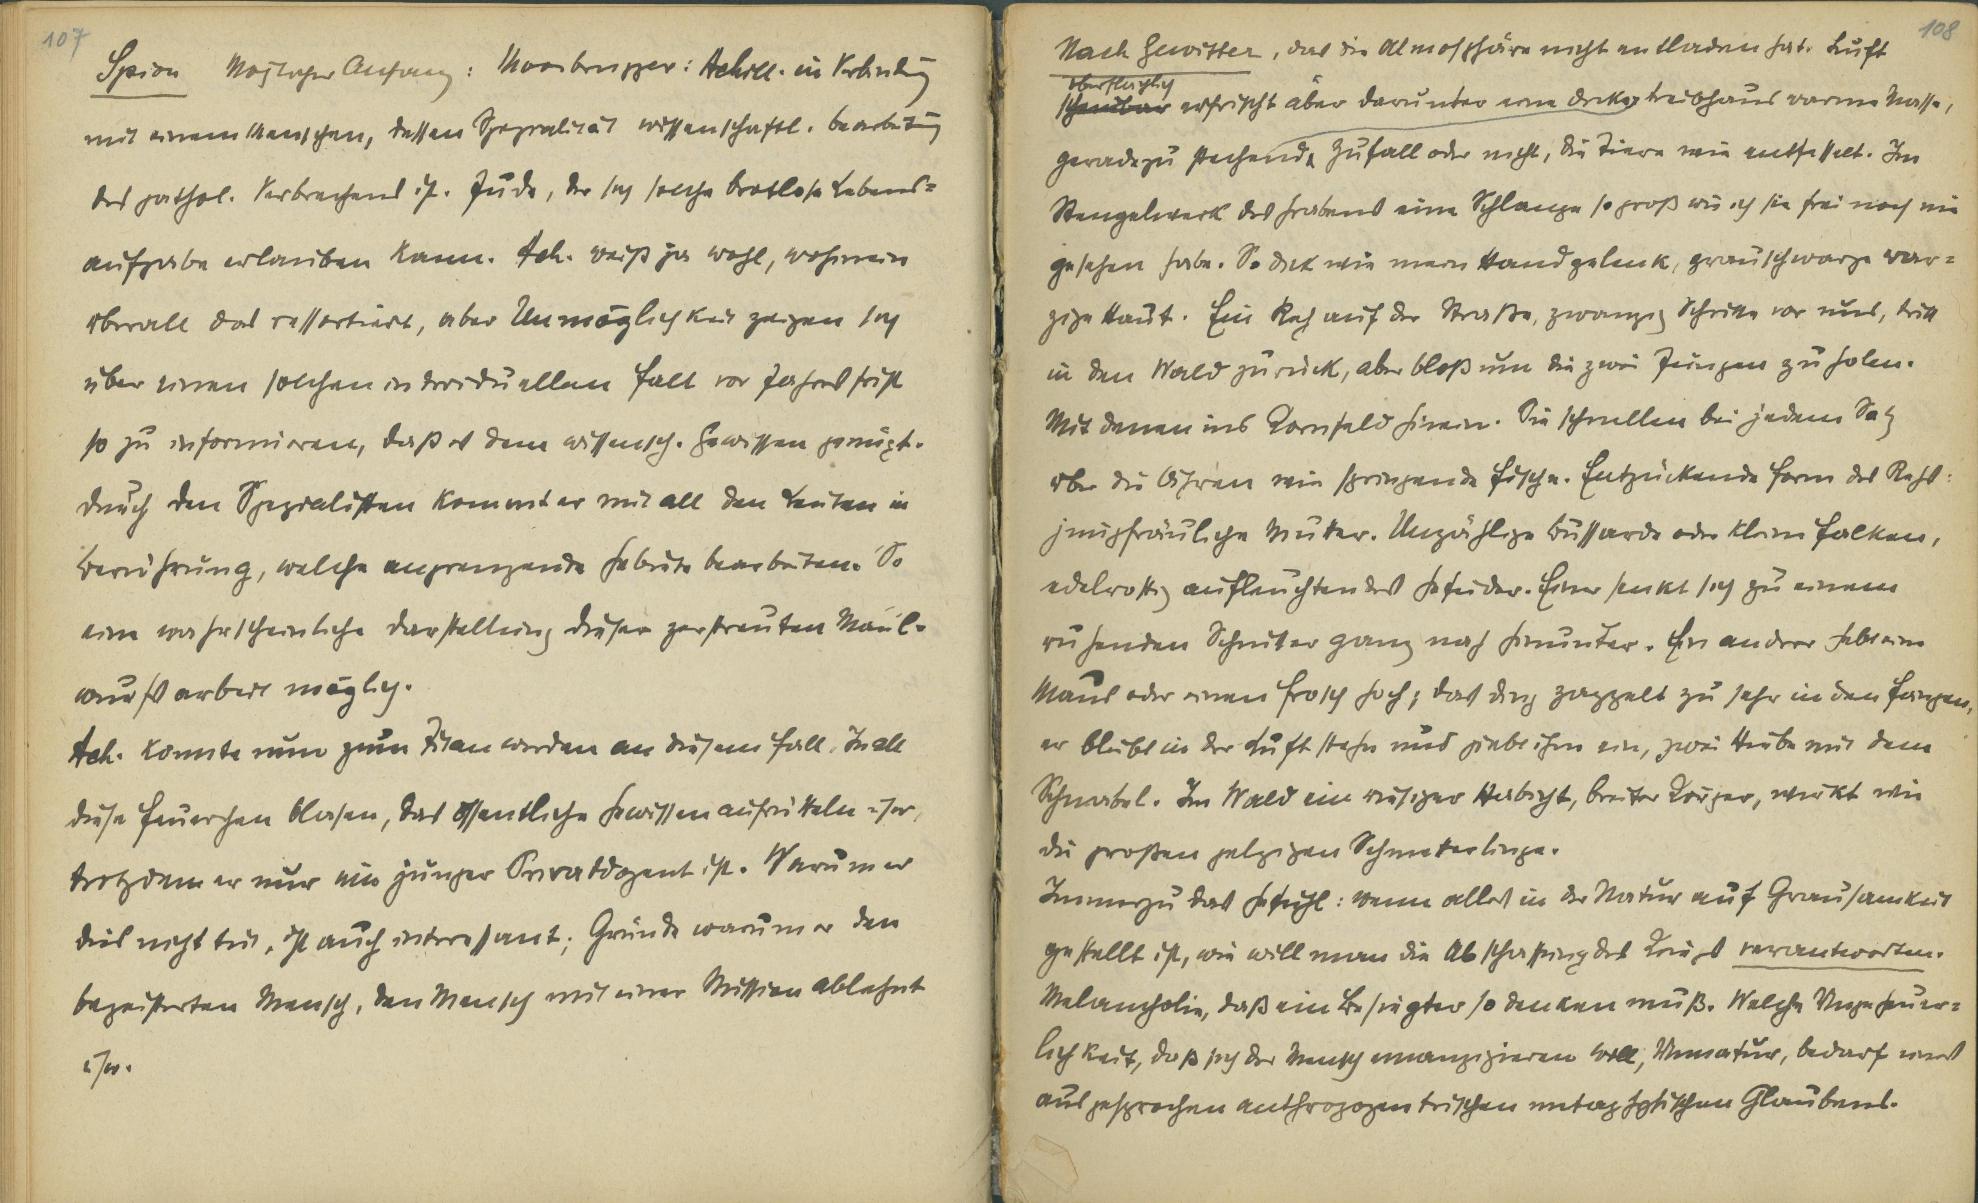 107
Spion Möglicher Anfang: Moosbrugger: Achill. in Verbindung
mit einem Menschen, dessen Spezialität wissenschaftl. Bearbeitung
des pathol. Verbrechens ist. Jude, der sich solche brotlose Lebens=
aufgabe erlauben kann. Ach. weiß ja wohl, wohinein
überall das ressortiert, aber Unmöglichkeit zeigen sich
über einen solchen individuellen Fall vor Jahresfrist
so zu informieren, daß es dem wissensch. Gewissen genügt.
Durch den Spezialisten kommt er mit all den Leuten in
Berührung, welche angrenzende Gebiete bearbeiten. So
eine wahrscheinliche Darstellung dieser zerstreuten Maul=
wurfsarbeit möglich.
Ach. könnte nun zum Titan werden an diesem Fall. In all
diese Feuerchen blasen, das öffentliche Gewissen aufrütteln usw,
trotzdem er nur ein junger Privatdozent ist. Warum er
dies nicht tut, ist auch interessant; Gründe warum er den
begeisterten Mensch, den Mensch mit einer Mission ablehnt
usw.
108
Nach Gewitter, das die Atmosphäre nicht entladen hat. Luft
oberflächlich
scheinbar erfrischt aber darunter eine dicke, treibhauswarme Masse,
geradezu stechend. Zufall oder nicht, die Tiere wie entfesselt. Im
Stengelwerk des Grabens eine Schlange so groß wie ich sie frei noch nie
gesehen habe. So dick wie mein Handgelenk, grauschwarze war=
zige Haut. Ein Reh auf der Straße, zwanzig Schritte vor uns, tritt
in den Wald zurück, aber bloß um die zwei Jungen zu holen.
Mit denen ins Kornfeld hinein. Sie schnellen bei jedem Satz
über die Ähren wie springende Fische. Entzückende Form des Rehs:
jungfräuliche Mutter. Unzählige Bussarde oder kleine Falken,
edelrostig aufleuchtendes Gefieder. Einer senkt sich zu einem
ruhenden Schnitter ganz nah hinunter. Ein andrer hebt eine
Maus oder einen Frosch hoch; das Ding zappelt zu sehr in den Fängen,
er bleibt in der Luft stehn und giebt ihm ein, zwei Hiebe mit dem
Schnabel. Im Wald ein riesiger Habicht, breiter Körper, wirkt wie
die großen pelzigen Schmetterlinge.
Immerzu das Gefühl: wenn alles in der Natur auf Grausamkeit
gestellt ist, wie will man die Abschaffung des Kriegs verantworten.
Melancholie, daß ein Besiegter so denken muß. Welche Ungeheuer=
lichkeit, daß sich der Mensch emanzipieren will, Unnatur, bedarf eines
ausgesprochen anthropozentrischen metaphysischen Glaubens.